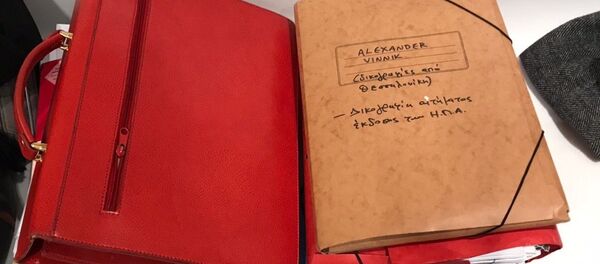 ALEXANDER
VINNIK
(δικογραφίες από
Θεσσαλονίκη)
- Δικογραφία αιτήματος
έκδοσης των Η.Π.Α.